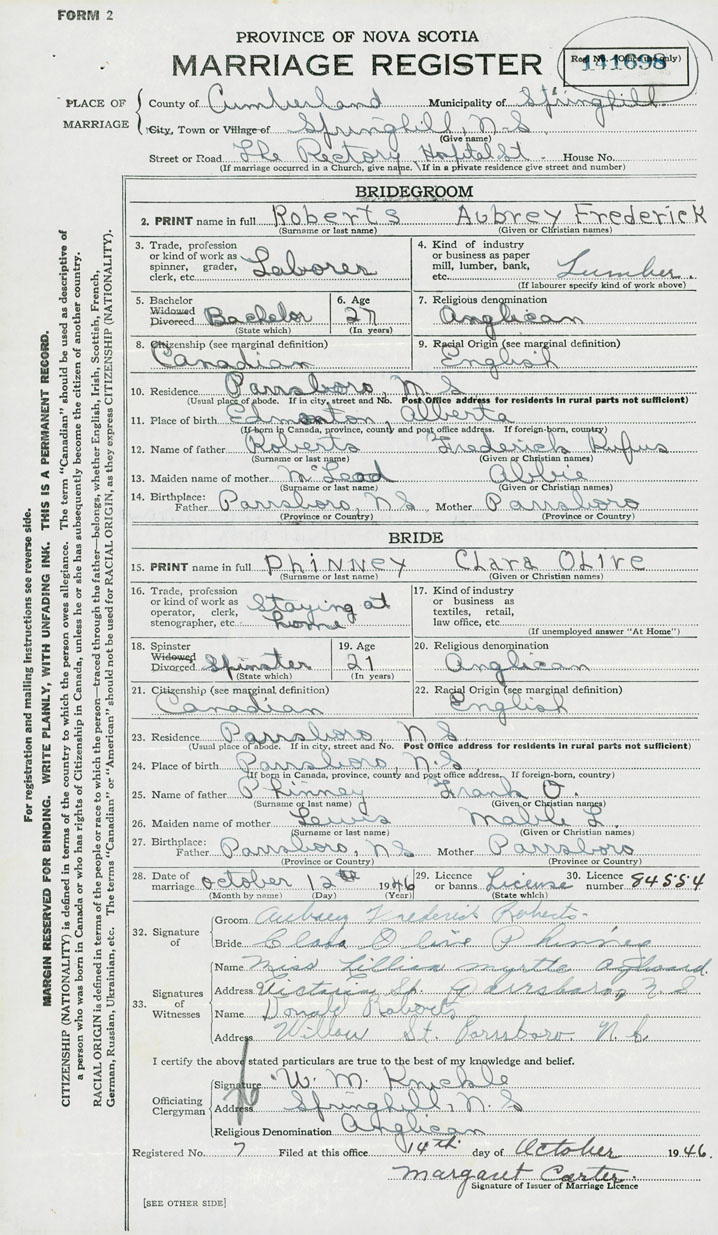 FORM 2
PROVINCE OF NOVA SCOTIA
MARRIAGE REGISTER
Reg. No. (Office use only)
141698
PLACE OF MARRIAGE
County of Cumberland Municipality of Springhill
City, Town or Village of Springhill, N.S
(Give name)
Street or Road The Rectory Hospital St. House No.
(If marriage occurred in a Church, give name. If in a private residence give street and number)
BRIDEGROOM
2. PRINT name in full Roberts Aubrey Frederick
(Surname or last name) (Given or Christian names)
3. Trade, profession or kind of work as spinner, grader, clerk, etc. Laborer
4. Kind of industry or business as paper mill, lumber, bank, etc. Lumber
(If labourer specify kind of work above)
5. Bachelor Widowed Divorced Bachelor
(State which)
6. Age 27
(In years)
7. Religious denomination
Anglican
8. Citizenship (see marginal definition)
Canadian
9. Racial Origin (see marginal definition)
English
10. Residence Parrsboro, N.S
(Usual place of abode. If in city, street and No. Post Office address for residents in rural parts not sufficient)
11. Place of birth Edmonton, Alberta
(If born in Canada, province, county and post office address. If foreign-born, country)
12. Name of father Roberts Frederick Rufus
(Surname or last name) (Given or Christian names)
13. Maiden name of mother McLead Abbie
(Surname or last name) (Given or Christian names)
14. Birthplace: Father Parrsboro, N S Mother Parrsboro
(Province or Country) (Province or Country)
BRIDE
15. PRINT name in full Phinney Clara Olive
(Surname or last name) (Given or Christian names)
16. Trade, profession or kind of work as operator, clerk, stenographer, etc. Staying at home
17. Kind of industry or business as textiles, retail, law office, etc.
(If unemployed answer "At Home")
18. Spinster Widowed Divorced Spinster
(State which)
19. Age 21
(In years)
20. Religious denomination
Anglican
21. Citizenship (see marginal definition)
Canadian
22. Racial Origin (see marginal definition)
English
23. Residence Parrsboro N S
(Usual place of abode. If in city, street and No. Post Office address for residents in rural parts not sufficient)
24. Place of birth Parrsboro, N.S
(If born in Canada, province, county and post office address. If foreign-born, country)
25. Name of father Phinney Frank O.
(Surname or last name) (Given or Christian names)
26. Maiden name of mother Lewis L.
(Surname or last name) (Given or Christian names)
27. Birthplace: Father Parrsboro, N S Mother Parrsboro
(Province or Country) (Province or Country)
28. Date of marriage October 12th 1946
(Month by name) (Day) (Year)
29. Licence or banns License
(State which)
30. Licence number 84554
32. Signature of
Groom Aubrey Frederick Roberts
Bride Clara Olive Phinney
33. Signatures of Witnesses
Name Miss Lillian Myrtle
Address Victoria St. Parrsboro, N S
Name Donald Roberts
Address Willow St. Parrsboro. N.S.
I certify the above stated particulars are true to the best of my knowledge and belief.
Officiating Clergyman
Signature W. M. Knickle
Address Springhill, N.S
Religious Denomination Anglican
Registered No. 7 Filed at this office 14th day of October 1946.
Margaret Carter
Signature of Issuer of Marriage Licence
[SEE OTHER SIDE]
For registration and mailing instructions see reverse side.
MARGIN RESERVED FOR BINDING. WRITE PLAINLY, WITH UNFADING INK. THIS IS A PERMANENT RECORD.
CITIZENSHIP (NATIONALITY) is defined in terms of the country to which the person owes allegiance. The term "Canadian" should be used as descriptive of
a person who was born in Canada or who has rights of Citizenship in Canada, unless he or she has subsequently become the citizen of another country.
RACIAL ORIGIN is defined in terms of the people or race to which the person—traced through the father—belongs, whether English, Irish, Scottish, French,
German, Russian, Ukrainian, etc. The terms "Canadian" or "American" should not be used for RACIAL ORIGIN, as they express CITIZENSHIP (NATIONALITY).